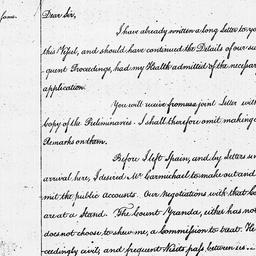 same.
Dear Sir,
I have already written a long Letter to yo
this Vessel, and should have continued the Details of our su
quent Proceedings, had my Health admitted of the necessar
application.
You will receive from us a joint Letter with
Copy of the Preliminaries. I shall therefore omit making
Remarks on them.
Before I left Spain, and by Letters sin
arrival here, I desired Mr Carmichael to make out and
mit the public Accounts. Our Negotiations with that Co
are at a Stand. The Count Aranda, either has not
does not choose to shew me, a Commission to treat. He
ceedingly civil, and frequent Visits pass between us.